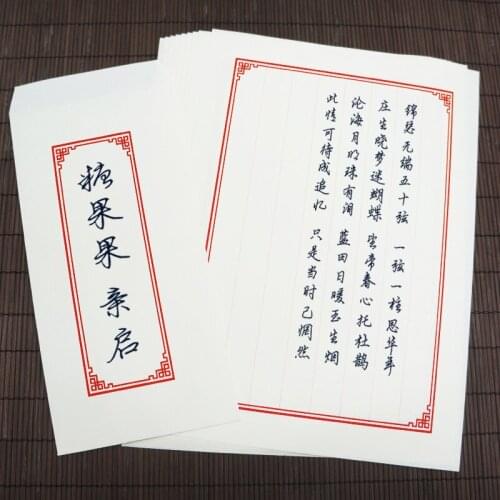 糖果果 亲启
锦瑟无端五十弦 一弦一柱思华年
庄生晓梦迷蝴蝶 望帝春心托杜鹃
沧海月明珠有泪 蓝田日暖玉生烟
此情可待成追忆 只是当时已惘然